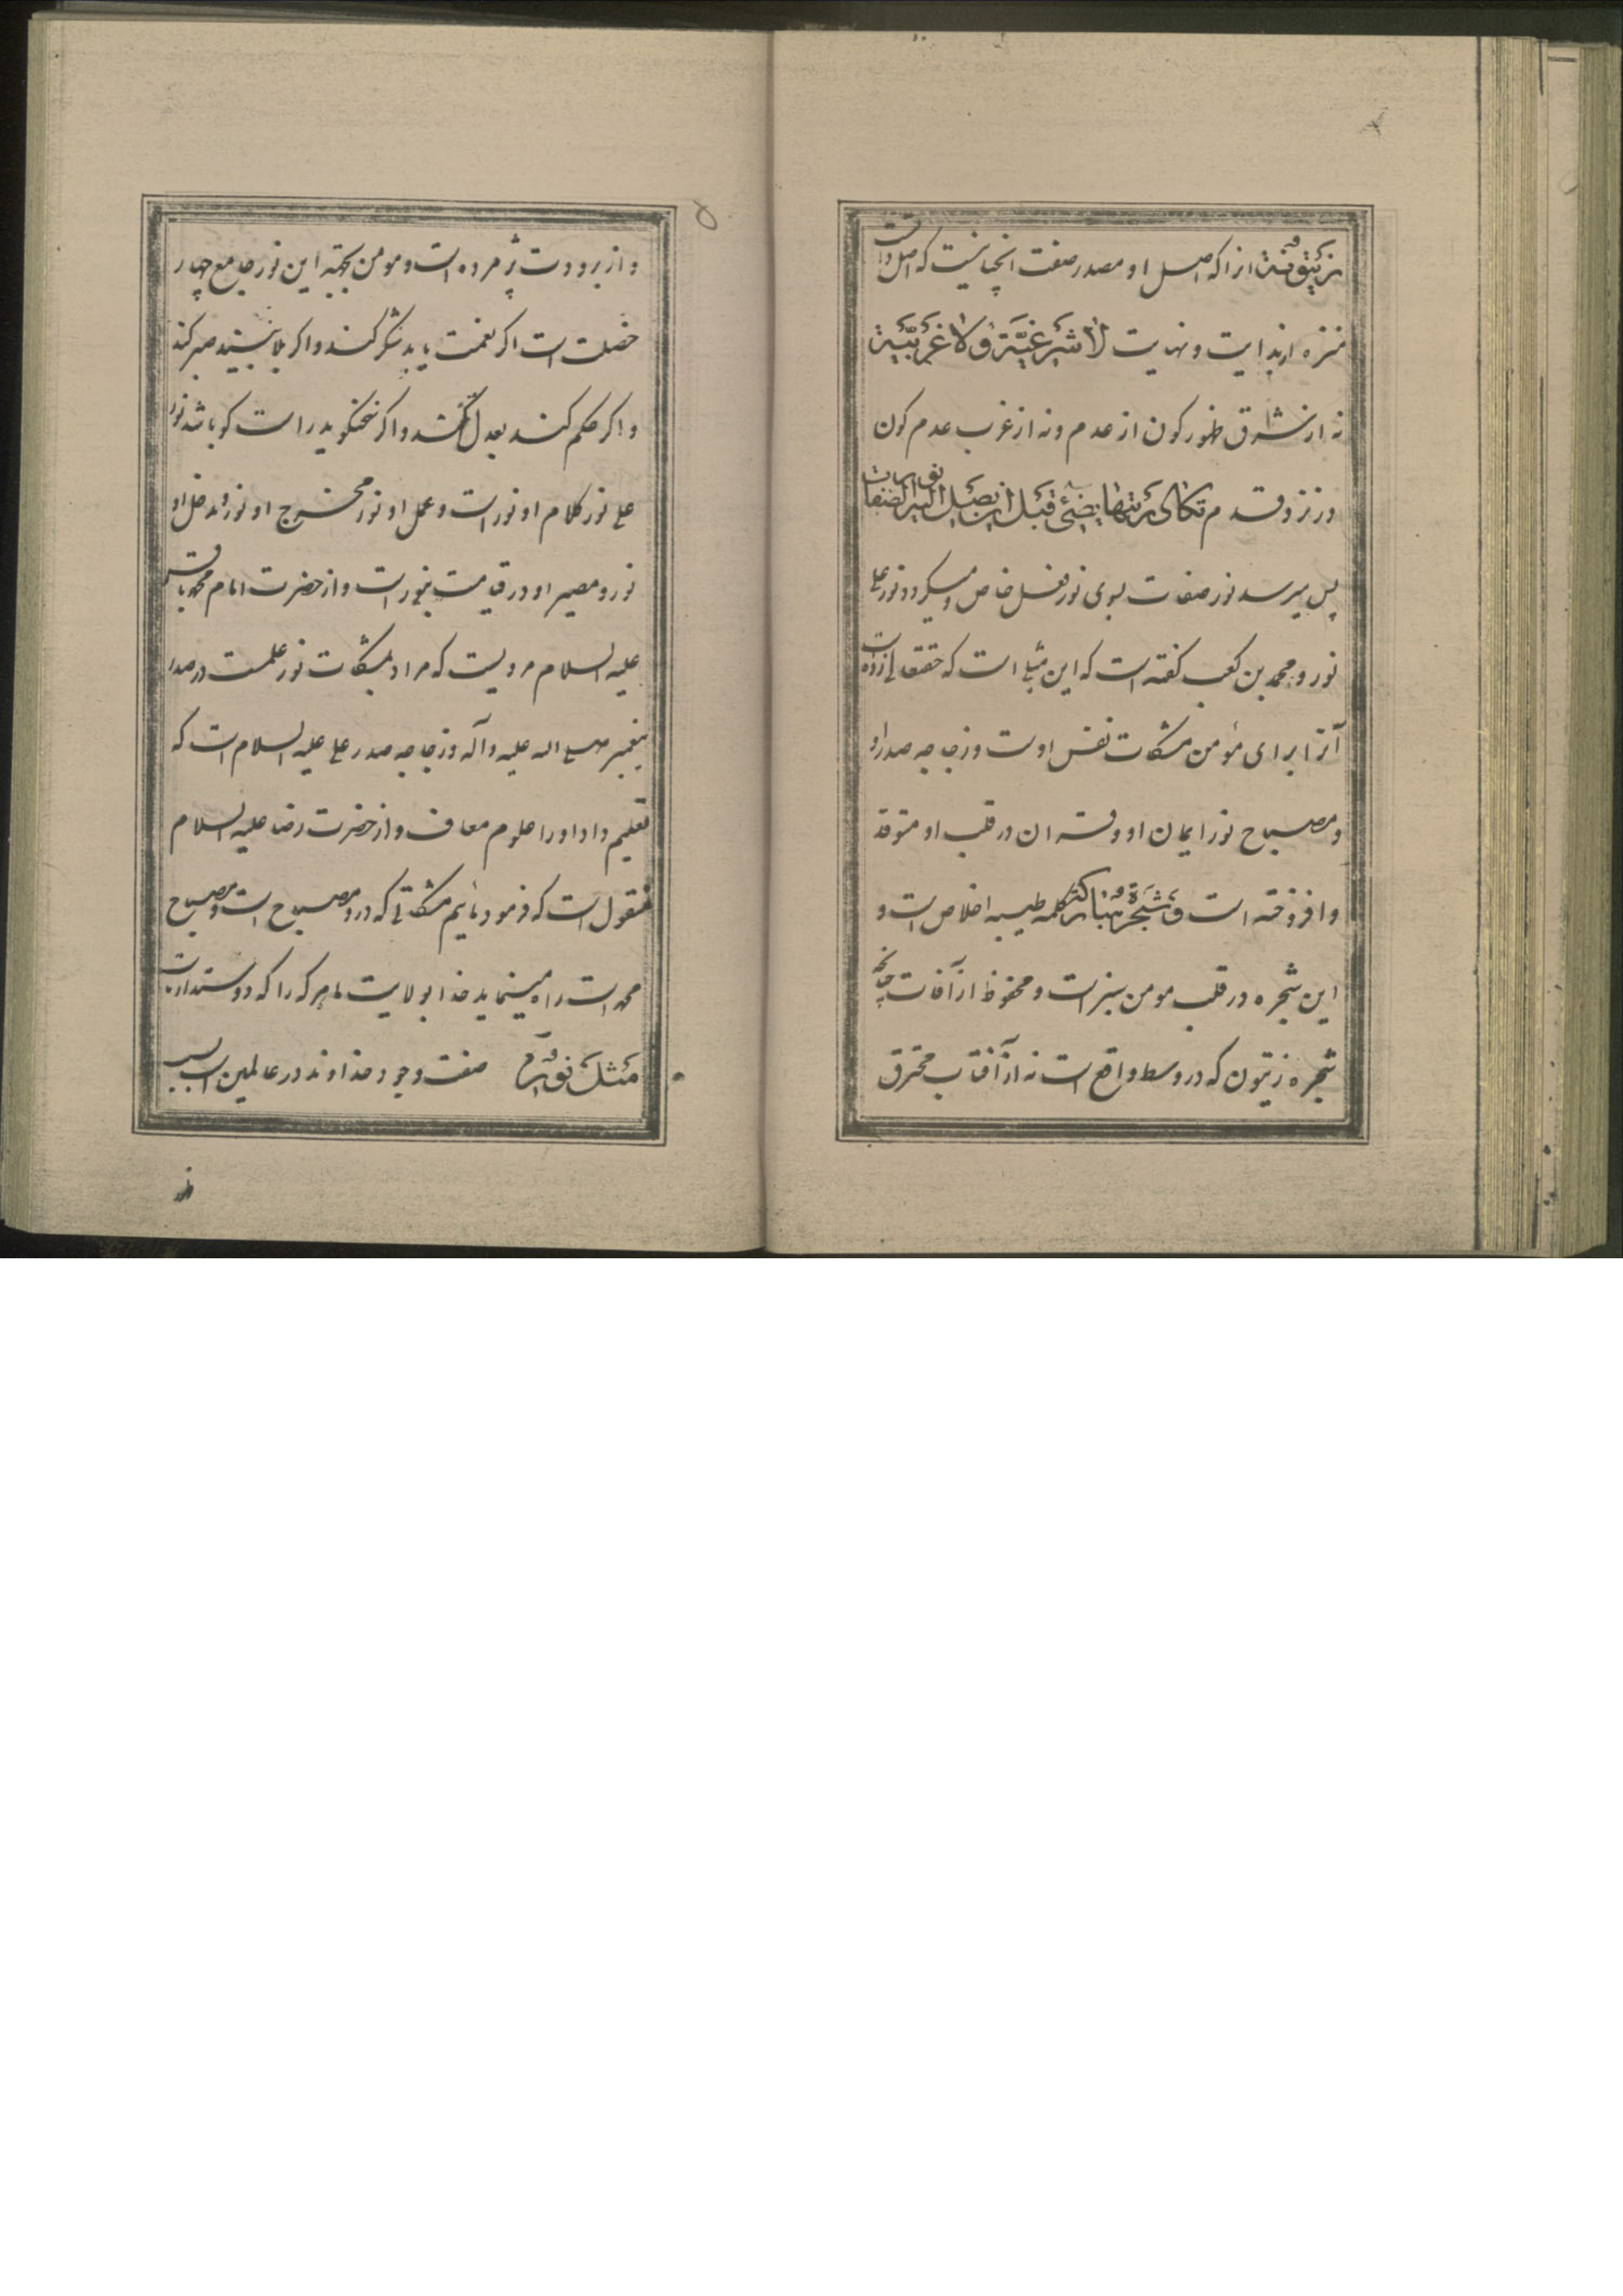 زَیْتُونَةٍ از آنکه اصل او مصدر صفت انچنانیست که اصل ذات
منزه از بدایت و نهایت لا شَرْقِیَّةٍ وَلا غَرْبِیَّةٍ
نه از شرق ظهور کون از عدم و نه از غرب عدم کون
در نزد قدم تکاد زیتها یضیئ قبل ان یصل الیه الصفات
پس میرسد نور صفات بسوی نور فعل خاص و میکردد نور علی
نور و محمد بن کعب کفته است که این مثلی است که حقتعالی زده است
آنرا برای مؤمن مشکات نفس اوست و زجاجه صدر او
و مصباح نور ایمان او و قرآن در قلب او متوقد
و افروخته است و شَجَرَةٍ مُبارَکَه کلمه طیبه اخلاص است و
این شجره در قلب مومن سبز است و محفوظ از آفات چنانچه
شجره زیتون که در وسط واقع است نه از آفتاب محترق
و از برودت پژمرده است و مومن بجهته این نور جامع چهار
خصلت است اکر نعمت یابد شکر کند و اکر بلا بیند صبر کند
و اکر حکم کند بعدل کند و اکر سخنکوید راست کو باشد نور
علی نور کلام او نور است و عمل او نور مخرج او نور و مدخل او
نور و مصیر او در قیامت بنور است و از حضرت امام محمد باقر
علیه السلام مرویست که مراد بمشکات نور علمست در صدر
پیغمبر صلی الله علیه وآله و زجاجه صدر علی علیه السلام است که
تعلیم داد او را علوم معارف و از حضرت رضا علیه السلام
منقول است که فرمود مائیم مشکاتی که در او مصباح است و مصباح
محمد است راه مینماید خدا بولایت ما هر که را که دوستدار ماست
مَثَلُ نُورِهِ صفت وجود خداوند در عالمین است بسبب